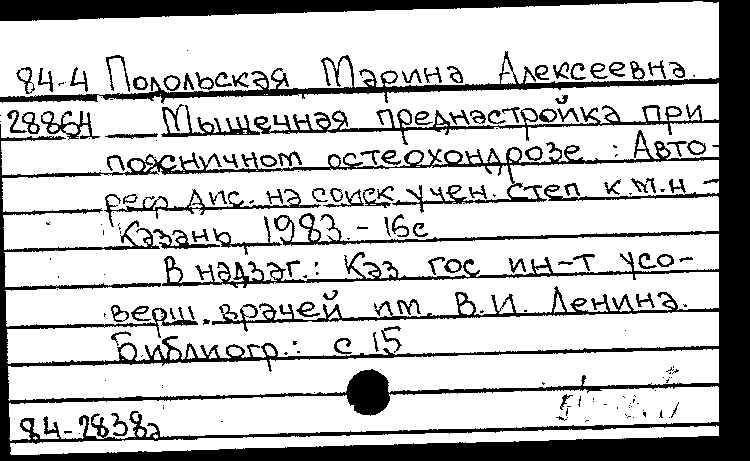 84-4 Подольская Марина Алексеевна.
28864 Мышечная преднастройка при
поясничном остеохондрозе : Авто-
реф. дис. на соиск. учен. степ к.м.н. -
Казань, 1983. - 16с.
В надзаг.: Каз. гос ин-т усо-
верш. врачей им. В.И. Ленина.
Библиогр.: с. 15
84-2838а